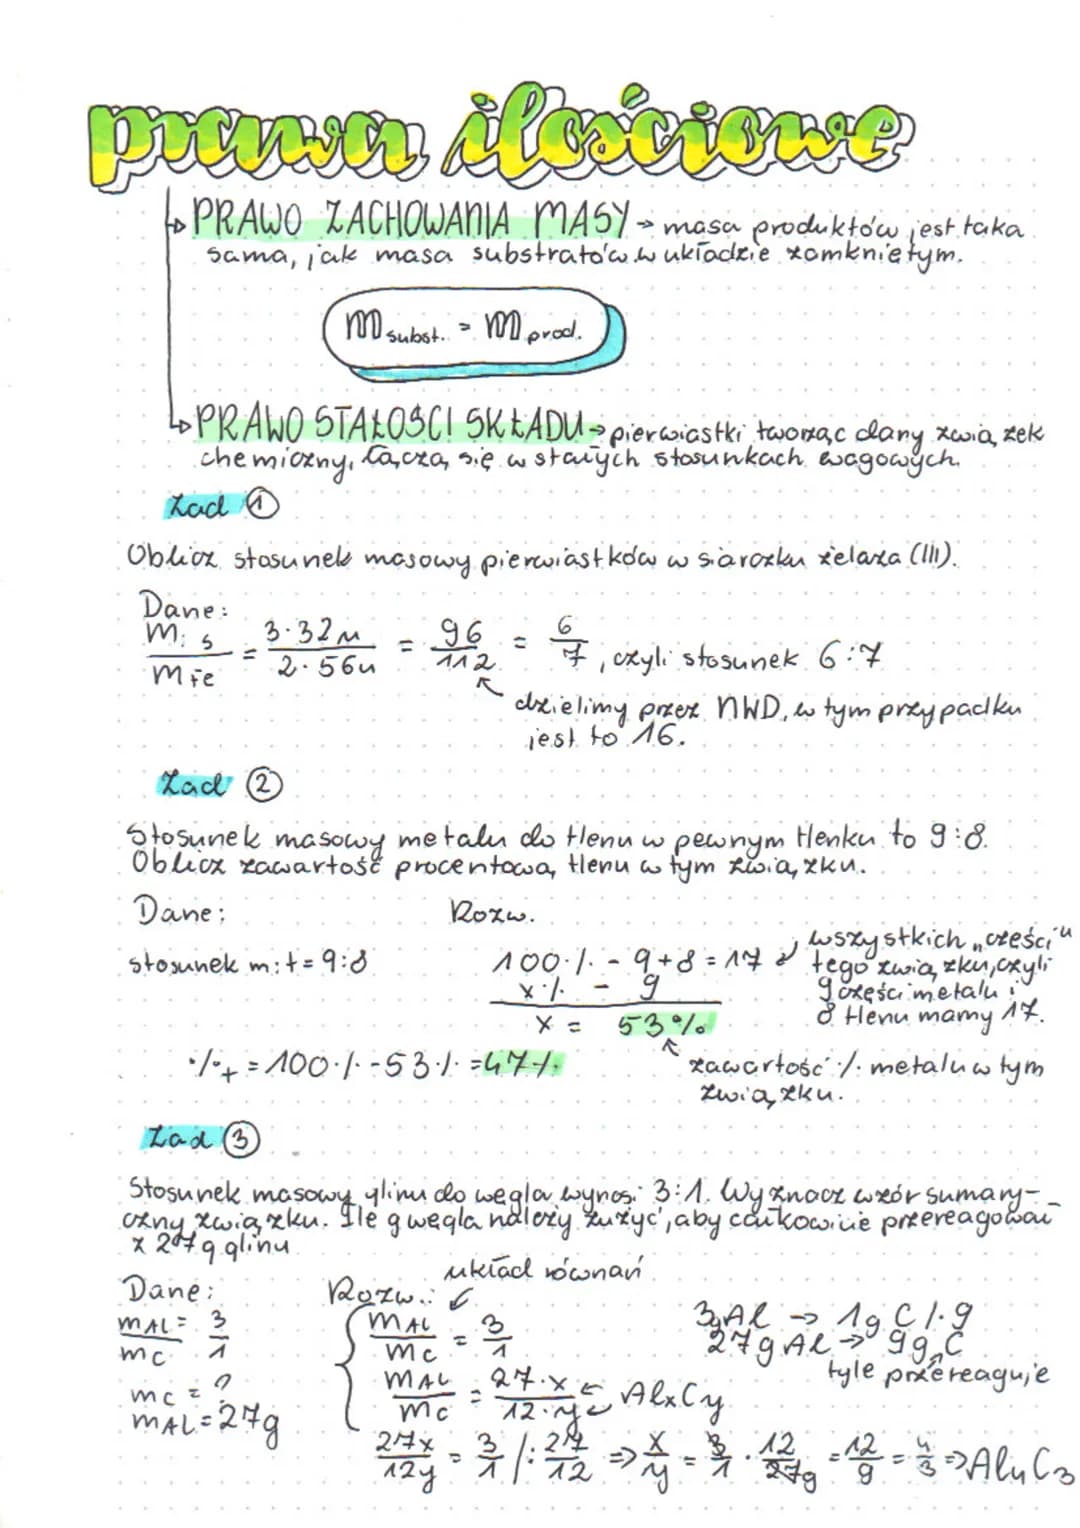 prawa ilościowe
↳ PRAWO ZACHOWANIA MASY → masa produktów jest taka
sama, jak masa substratów w układzie zamkniętym.
m subst. = m prod.
↳ PRAWO STAŁOŚCI SKŁADU → pierwiastki tworząc dany związek
chemiczny, łączą się w stałych stosunkach wagowych.
Zad ①
Oblicz stosunek masowy pierwiastków w siarczku żelaza (III).
Dane:
m: s / m Fe = 3·32u / 2·56u = 96 / 112 = 6 / 7, czyli stosunek 6:7
dzielimy przez NWD, w tym przypadku
jest to 16.
Zad ②
Stosunek masowy metalu do tlenu w pewnym tlenku to 9:8.
Oblicz zawartość procentową tlenu w tym związku.
Dane: Rozw.
stosunek m:t = 9:8
100% - 9+8 = 17
x% - 9
x = 53%
wszystkich „części"
tego związku, czyli
9 części metalu i
8 tlenu mamy 17.
%t = 100% - 53% = 47%
zawartość % metalu w tym
związku.
Zad ③
Stosunek masowy glinu do węgla wynosi 3:1. Wyznacz wzór sumary-
czny związku. Ile g węgla należy zużyć, aby całkowicie przereagował
z 27g glinu
Dane: Rozw.: układ równań
mAL / mc = 3 / 1
mc = ?
mAL = 27g
mAL / mc = 3 / 1
mAL / mc = 27·x / 12·y AlxCy
3g Al → 1g C /·9
27g Al → 9g C
tyle przereaguje
27x / 12y = 3 / 1 /: 27 / 12 ⇒ x / y = 3 / 1 · 12 / 27g = 12 / 9 = 4 / 3 ⇒ Al4C3